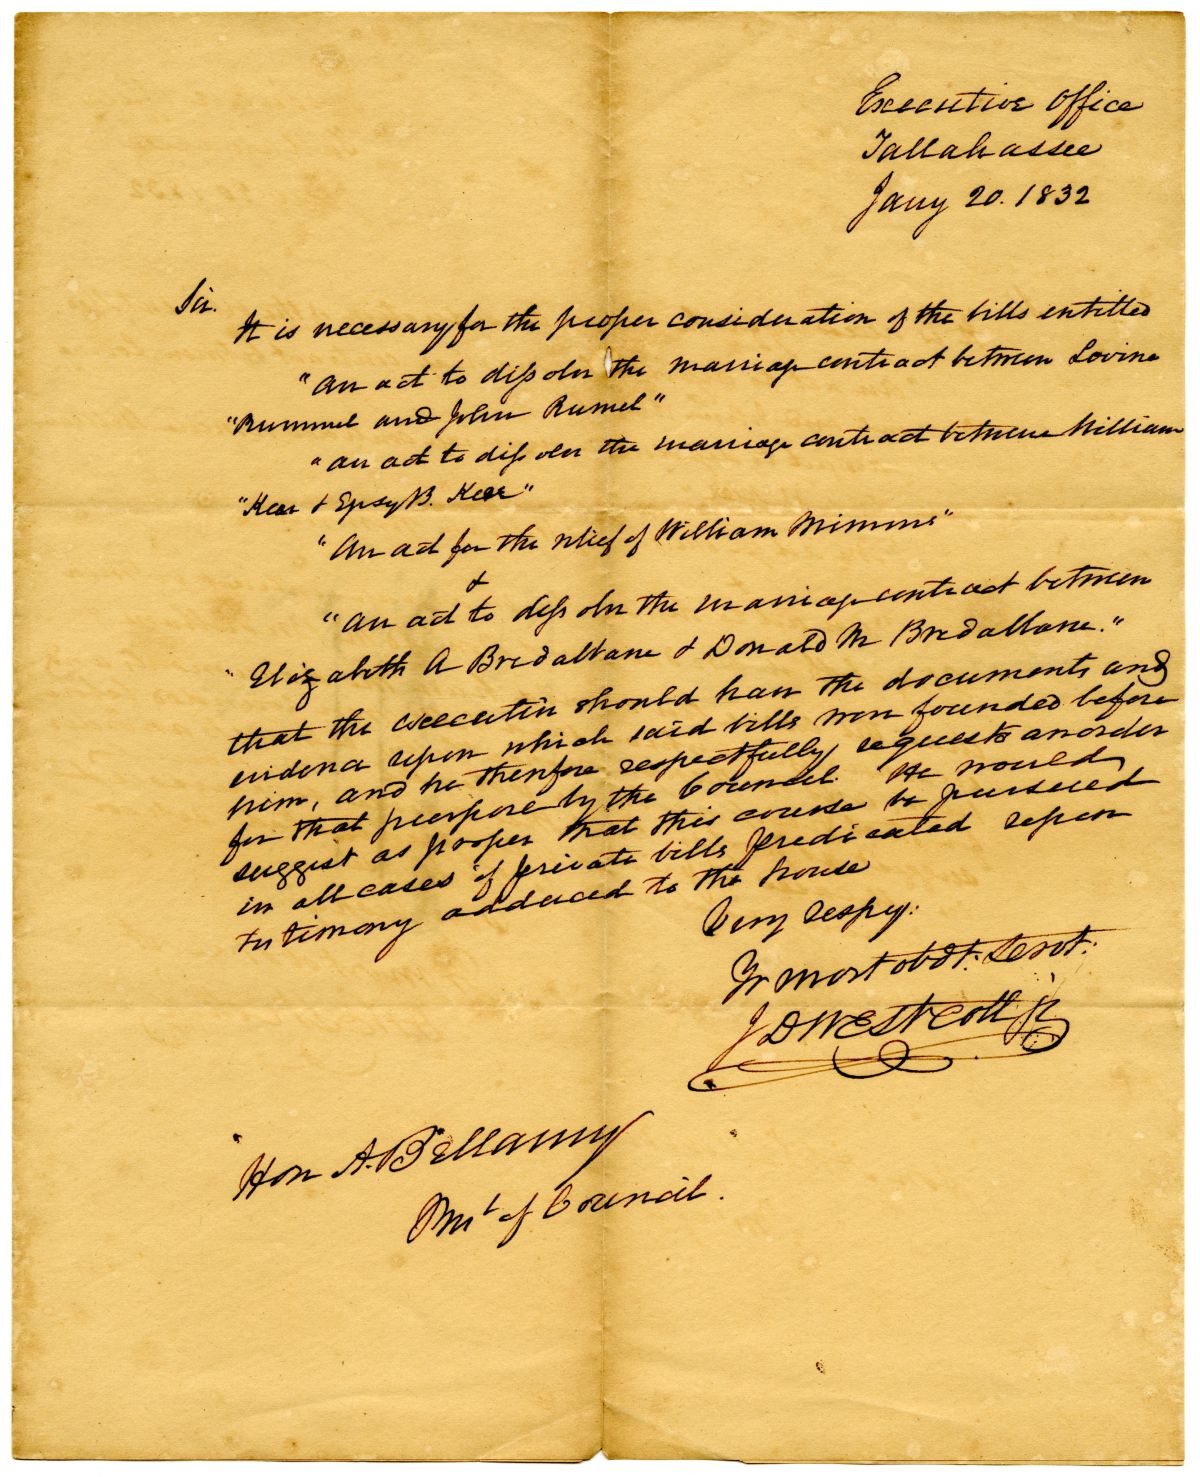 Executive Office
Tallahassee
Jany 20. 1832
Sir.
It is necessary for the proper consideration of the bills entitled
"An act to dissolve the marriage contract between Lovina
"Rummel and John Rumel"
"An act to dissolve the marriage contract between William
"Kerr & Epsy B. Kerr"
"An act for the relief of William Mimms"
&
"An act to dissolve the marriage contract between
"Elizabeth A Bredalbane & Donald M Bredalbane."
that the executive should have the documents and
evidence upon which said bills were founded before
him, and he therefore respectfully requests an order
for that purpose by the Council. He would
suggest as proper that this course be pursued
in all cases of private bills predicated upon
testimony adduced to the house
Very respy:
Yr most obdt: Servt:
J D Westcott jr
Hon A. Bellamy
Prest of Council.